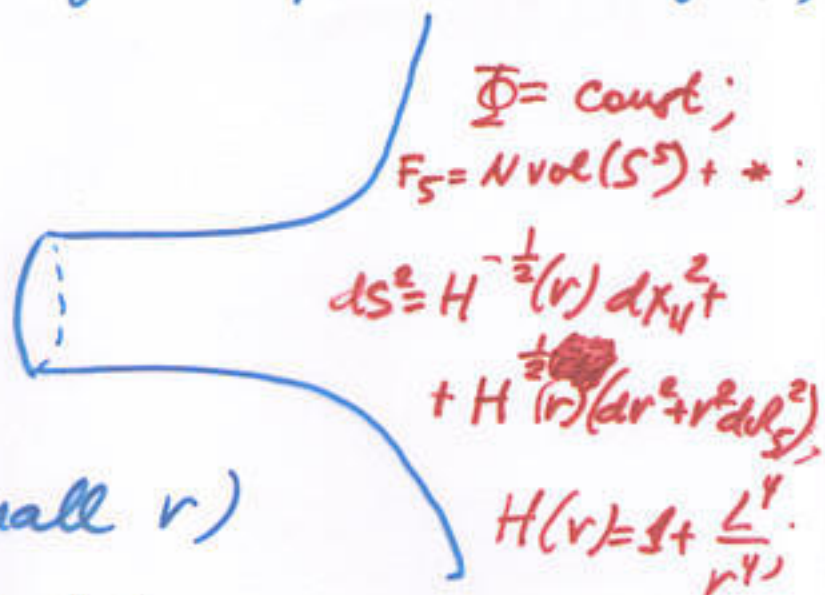 Φ = const;
F₅ = N vol(S⁵) + *;
dS² = H^{-1/2}(r) dx₄² +
+ H^{1/2}(r)(dr² + r²dΩ₅²),
(small r)
H(r) = 1 + L⁴/r⁴,